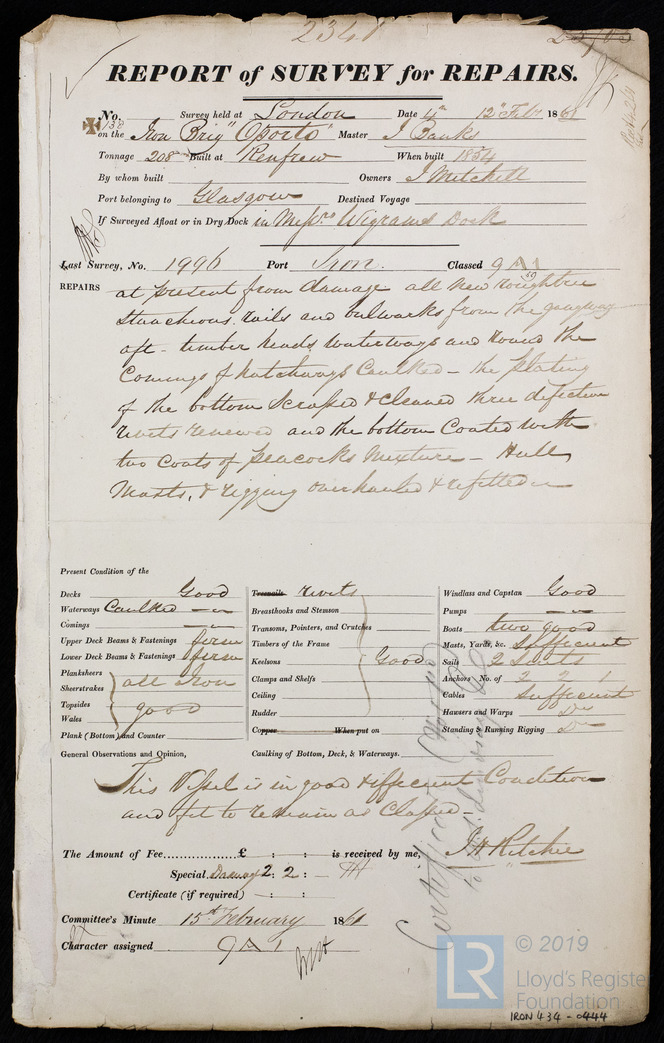 2341
REPORT of SURVEY for REPAIRS.
No. 138 Survey held at London Date 4th 12th Feby 1861
on the Iron Brig "Oporto" Master J Banks
Tonnage 208 Built at Renfrew When built 1854
By whom built Owners J Mitchell
Port belonging to Glasgow Destined Voyage
If Surveyed Afloat or in Dry Dock in Messrs Wigrams Dock
Last Survey, No. 1996 Port Iron. Classed 9 A 1
REPAIRS at present from damage all new roughtree
stanchions, rails and bulwarks from the gangway
aft - timber heads waterways and round the
Comings of hatchways Caulked - the plating
of the bottom Scraped & cleaned three defective
rivets renewed and the bottom Coated with
two Coats of Peacocks Mixture - Hull,
Masts, & rigging overhauled & refitted
Present Condition of the
Decks Good
Waterways Caulked
Comings
Upper Deck Beams & Fastenings firm
Lower Deck Beams & Fastenings firm
Planksheers
Sheerstrakes all Iron
Topsides
Wales good
Plank (Bottom) and Counter
Treenails rivets
Breasthooks and Stemson
Transoms, Pointers, and Crutches
Timbers of the Frame
Keelsons Good
Clamps and Shelfs
Ceiling
Rudder
Copper When put on
Windlass and Capstan Good
Pumps
Boats two good
Masts, Yards, &c. Sufficient
Sails 2 Suits
Anchors No. of 2 2 1
Cables Sufficient
Hawsers and Warps Do
Standing & Running Rigging Do
General Observations and Opinion, Caulking of Bottom, Deck, & Waterways.
This Vessel is in good & efficient Condition
and fit to remain as Classed -
The Amount of Fee £ : : is received by me, J H Ritchie
Special Damage 2 : 2 : -
Certificate (if required) : :
Committee's Minute 15th February 1861
Character assigned 9 A 1
© 2019
LR
Lloyd's Register
Foundation
IRON 434 - 0444